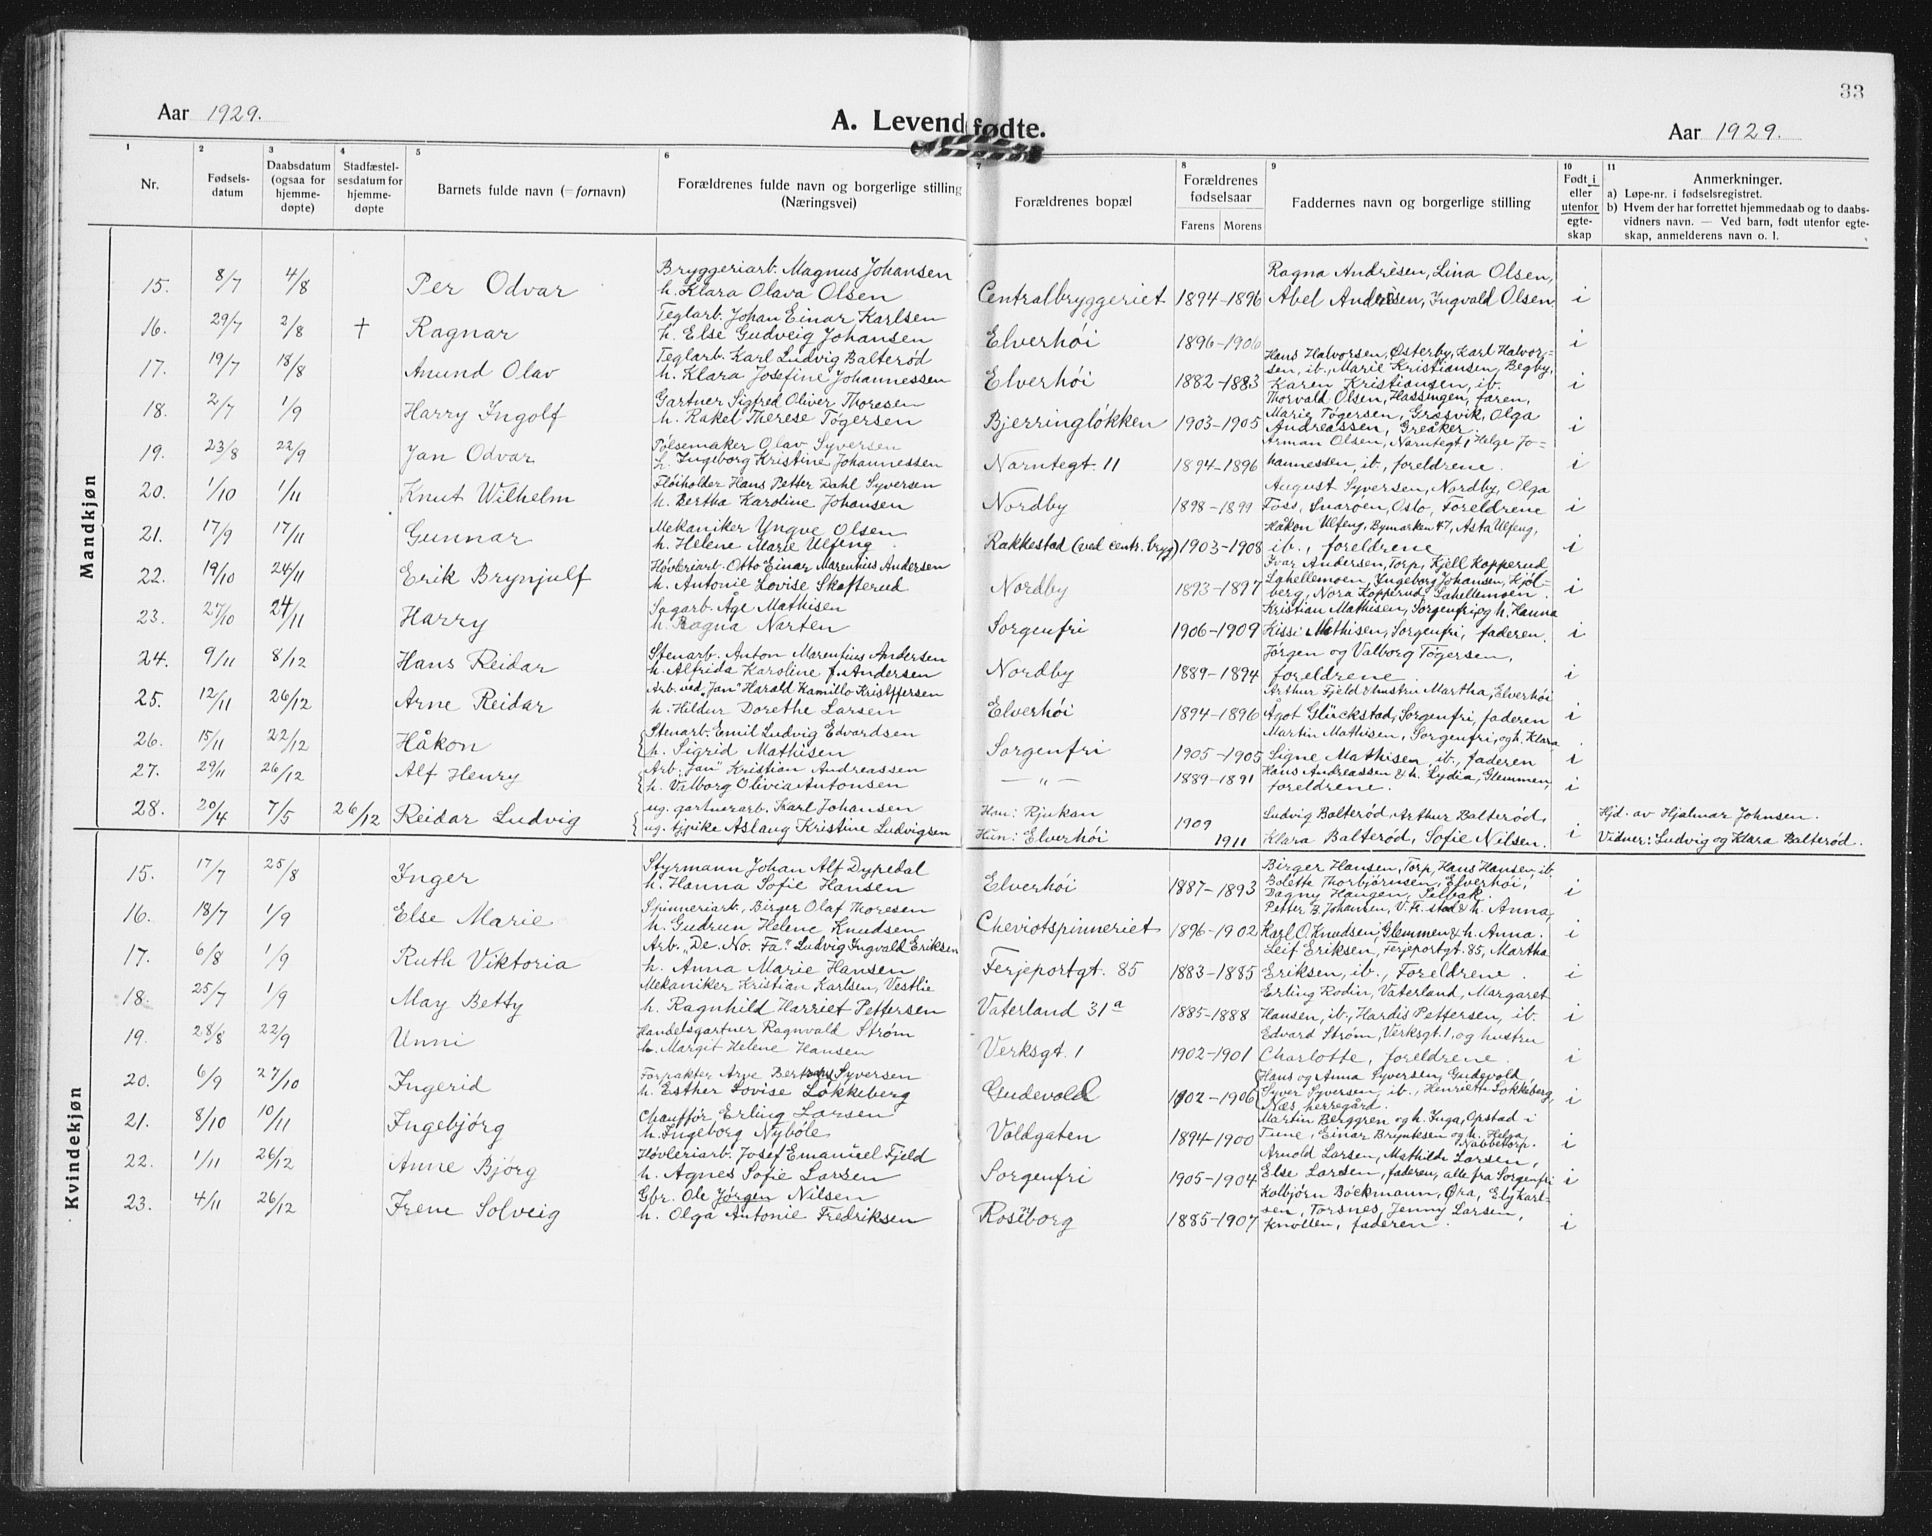 33
Aar 1929.
A. Levendefødte.
Aar 1929.
1 Nr.
2 Fødsels-datum
3 Daabsdatum (ogsaa for hjemme-døpte)
4 Stadfæstel-sesdatum for hjemme-døpte
5 Barnets fulde navn (= fornavn)
6 Forældrenes fulde navn og borgerlige stilling (Næringsvei)
7 Forældrenes bopæl
8 Forældrenes fødselsaar Farens Morens
9 Faddernes navn og borgerlige stilling
10 Født i eller utenfor egte-skap
11 Anmerkninger.
a) Løpe-nr. i fødselsregistret.
b) Hvem der har forrettet hjemmedaab og to daabs-
vidners navn. — Ved barn, født utenfor egte-
skap, anmelderens navn o. l.
Mandkjøn
15. 8/7 4/8 Per Odvar
Bryggeriarb. Magnus Johansen
h. Klara Olava Olsen
Centralbryggeriet 1894-1896
Ragna Andresen, Lina Olsen,
Abel Andersen, Ingvald Olsen i
16. 29/7 2/8 + Ragnar
Teglarb. Johan Einar Karlsen
h. Else Gudveig Johansen
Elverhöi 1896-1906 i
17. 19/7 18/8 Amund Olav
Teglarb. Karl Ludvig Balterød
h. Klara Josefine Johannessen
Elverhöi 1882-1883
Hans Halvorsen, Østerby, Karl Halvor-
sen, ib., Marie Kristiansen, Begby,
Karen Kristiansen, ib. i
18. 2/7 1/9 Harry Ingolf
Gartner Sigfred Oliver Thoresen
h. Rakel Therese Tøgersen
Bjerringløkken 1903-1905
Thorvald Olsen, Hassingen, faren,
Marie Tøgersen, Gresvik, Olga
Andreassen, Greåker. i
19. 23/8 22/9 Jan Odvar
Pølsemaker Olav Syversen
h. Ingeborg Kristine Johannessen
Narntegt. 11 1894-1896
Arman Olsen, Narntegt, Helge Jo-
hannessen, ib., foreldrene. i
20. 1/10 1/11 Knut Wilhelm
Fløiholder Hans Petter Dahl Syversen
h. Bertha Karoline Johansen
Nordby 1898-1899
August Syversen, Nordby, Olga
Foss, Snarøen, Oslo, Foreldrene i
21. 17/9 17/11 Gunnar
Mekaniker Yngve Olsen
h. Helene Marie Ulfeng
Rakkestad (ved centr. bryg) 1903-1908
Håkon Ulfeng, Bymarken 47, Asta Ulfeng,
ib., foreldrene i
22. 19/10 24/11 Erik Brynjulf
Høvleriarb. Otto Einar Marentius Andersen
h. Antonie Lovise Skofterud
Nordby 1893-1897
Ivar Andersen, Torp, Kjell Kopperud
Lahellemoen, Ingeborg Johansen, Kjøl-
berg, Nora Kopperud, Lahellemoen. i
23. 27/10 24/11 Harry
Sagarb. Åge Mathisen
h. Ragna Narten
Sorgenfri 1906-1909
Kristian Mathisen, Sorgenfri, og h. Hanna
Kissi Mathisen, Sorgenfri, faderen. i
24. 9/11 8/12 Hans Reidar
Stenarb. Anton Marentius Andersen
h. Alfrida Karoline f. Andersen
Nordby 1889-1894
Jörgen og Valborg Tøgersen,
foreldrene. i
25. 12/11 26/12 Arne Reidar
Arb. ved „Jan" Harald Kamillo Kristffersen
h. Hildur Dorethe Larsen
Elverhöi 1894-1896
Arthur Fjeld & hustru Martha, Elverhöi
Ågot Glürckstad, Sorgenfri, faderen i
26. 15/11 22/12 Håkon
Stenarb. Emil Ludvig Edvardsen
h. Sigrid Mathisen
Sorgenfri 1905-1905
Martin Mathisen, Sorgenfri, og h. Klara
Signe Mathisen, ib., faderen i
27. 29/11 26/12 Alf Henry
Arb. „Jan" Kristian Andreassen
h. Valborg Olivia Antonsen
— „ — 1889-1891
Hans Andreassen & h. Lydia, Glemmen,
foreldrene. i
28. 20/4 7/5 26/12 Reidar Ludvig
ug. gartnerarb. Karl Johansen
ug. tjpike Aslaug Kristine Ludvigsen
Han: Rjukan
Hun: Elverhöi
1909 1911
Ludvig Balterød, Arthur Balterød,
Klara Balterød, Sofie Nilsen. i
Hjd. av Hjalmar Johnsen.
Vidner: Ludvig og Klara Balterød.
Kvindekjøn
15. 17/7 25/8 Inger
Styrmann Johan Alf Dypedal
h. Hanna Sofie Hansen
Elverhöi 1887-1893
Birger Hansen, Torp, Hans Hansen, ib
Bolette Thorbjörnsen, Elverhöi,
Dagny Haugen, Selbak. i
16. 18/7 1/9 Else Marie
Spinneriarb. Birger Olaf Thoresen
h. Gudrun Helene Knudsen
Cheviotspinneriet 1896-1902
Petter B. Johansen, V. Fr.stad & h. Anna,
Karl O. Knudsen, Glemmen & h. Anna. i
17. 6/8 1/9 Ruth Viktoria
Arb. „De No. Fa." Ludvig Ingvald Eriksen
h. Anna Marie Hansen
Ferjeportgt. 85 1883-1885
Leif Eriksen, Ferjeportgt. 85, Martha
Eriksen, ib., Foreldrene. i
18. 25/7 1/9 May Betty
Mekaniker Kristian Karlsen, Vestlie
h. Ragnhild Harriet Pettersen
Vaterland 31a 1885-1888
Erling Rodin, Vaterland, Margaret
Hansen, ib., Hardis Pettersen, ib. i
19. 28/8 22/9 Unni
Handelsgartner Ragnvald Strøm
h. Margit Helene Hansen
Verksgt. 1 1902-1901
Edvard Strøm, Verksgt. 1, og hustru
Charlotte, foreldrene. i
20. 6/9 27/10 Ingerid
Forpakter Arve Syversen
h. Esther Lovise Løkkeberg
Gudevold 1902-1906
Hans og Anna Syversen, Gudevold
Syver Syversen, ib., Henriette Lokkeberg,
Næs herregård. i
21. 8/10 10/11 Ingebjørg
Chauffør Erling Larsen
h. Ingeborg Nybøle
Voldgaten 1894-1900
Martin Berggren og h. Inga, Opstad i
Tune, Einar Bryntesen og h. Helga, Nabbetorp. i
22. 1/11 26/12 Anne Bjørg
Høvleriarb. Josef Emanuel Fjeld
h. Agnes Sofie Larsen
Sorgenfri 1905-1904
Arnold Larsen, Mathilde Larsen,
Else Larsen, faderen, alle fra Sorgenfri i
23. 4/11 26/12 Irene Solveig
Gbr. Ole Jørgen Nilsen
h. Olga Antonie Fredriksen
Rosenborg 1885-1907
Kolbjørn Bøckmann, Øra, Ely Karl-
sen, Torsnes, Jenny Larsen,
Knollen, faderen. i